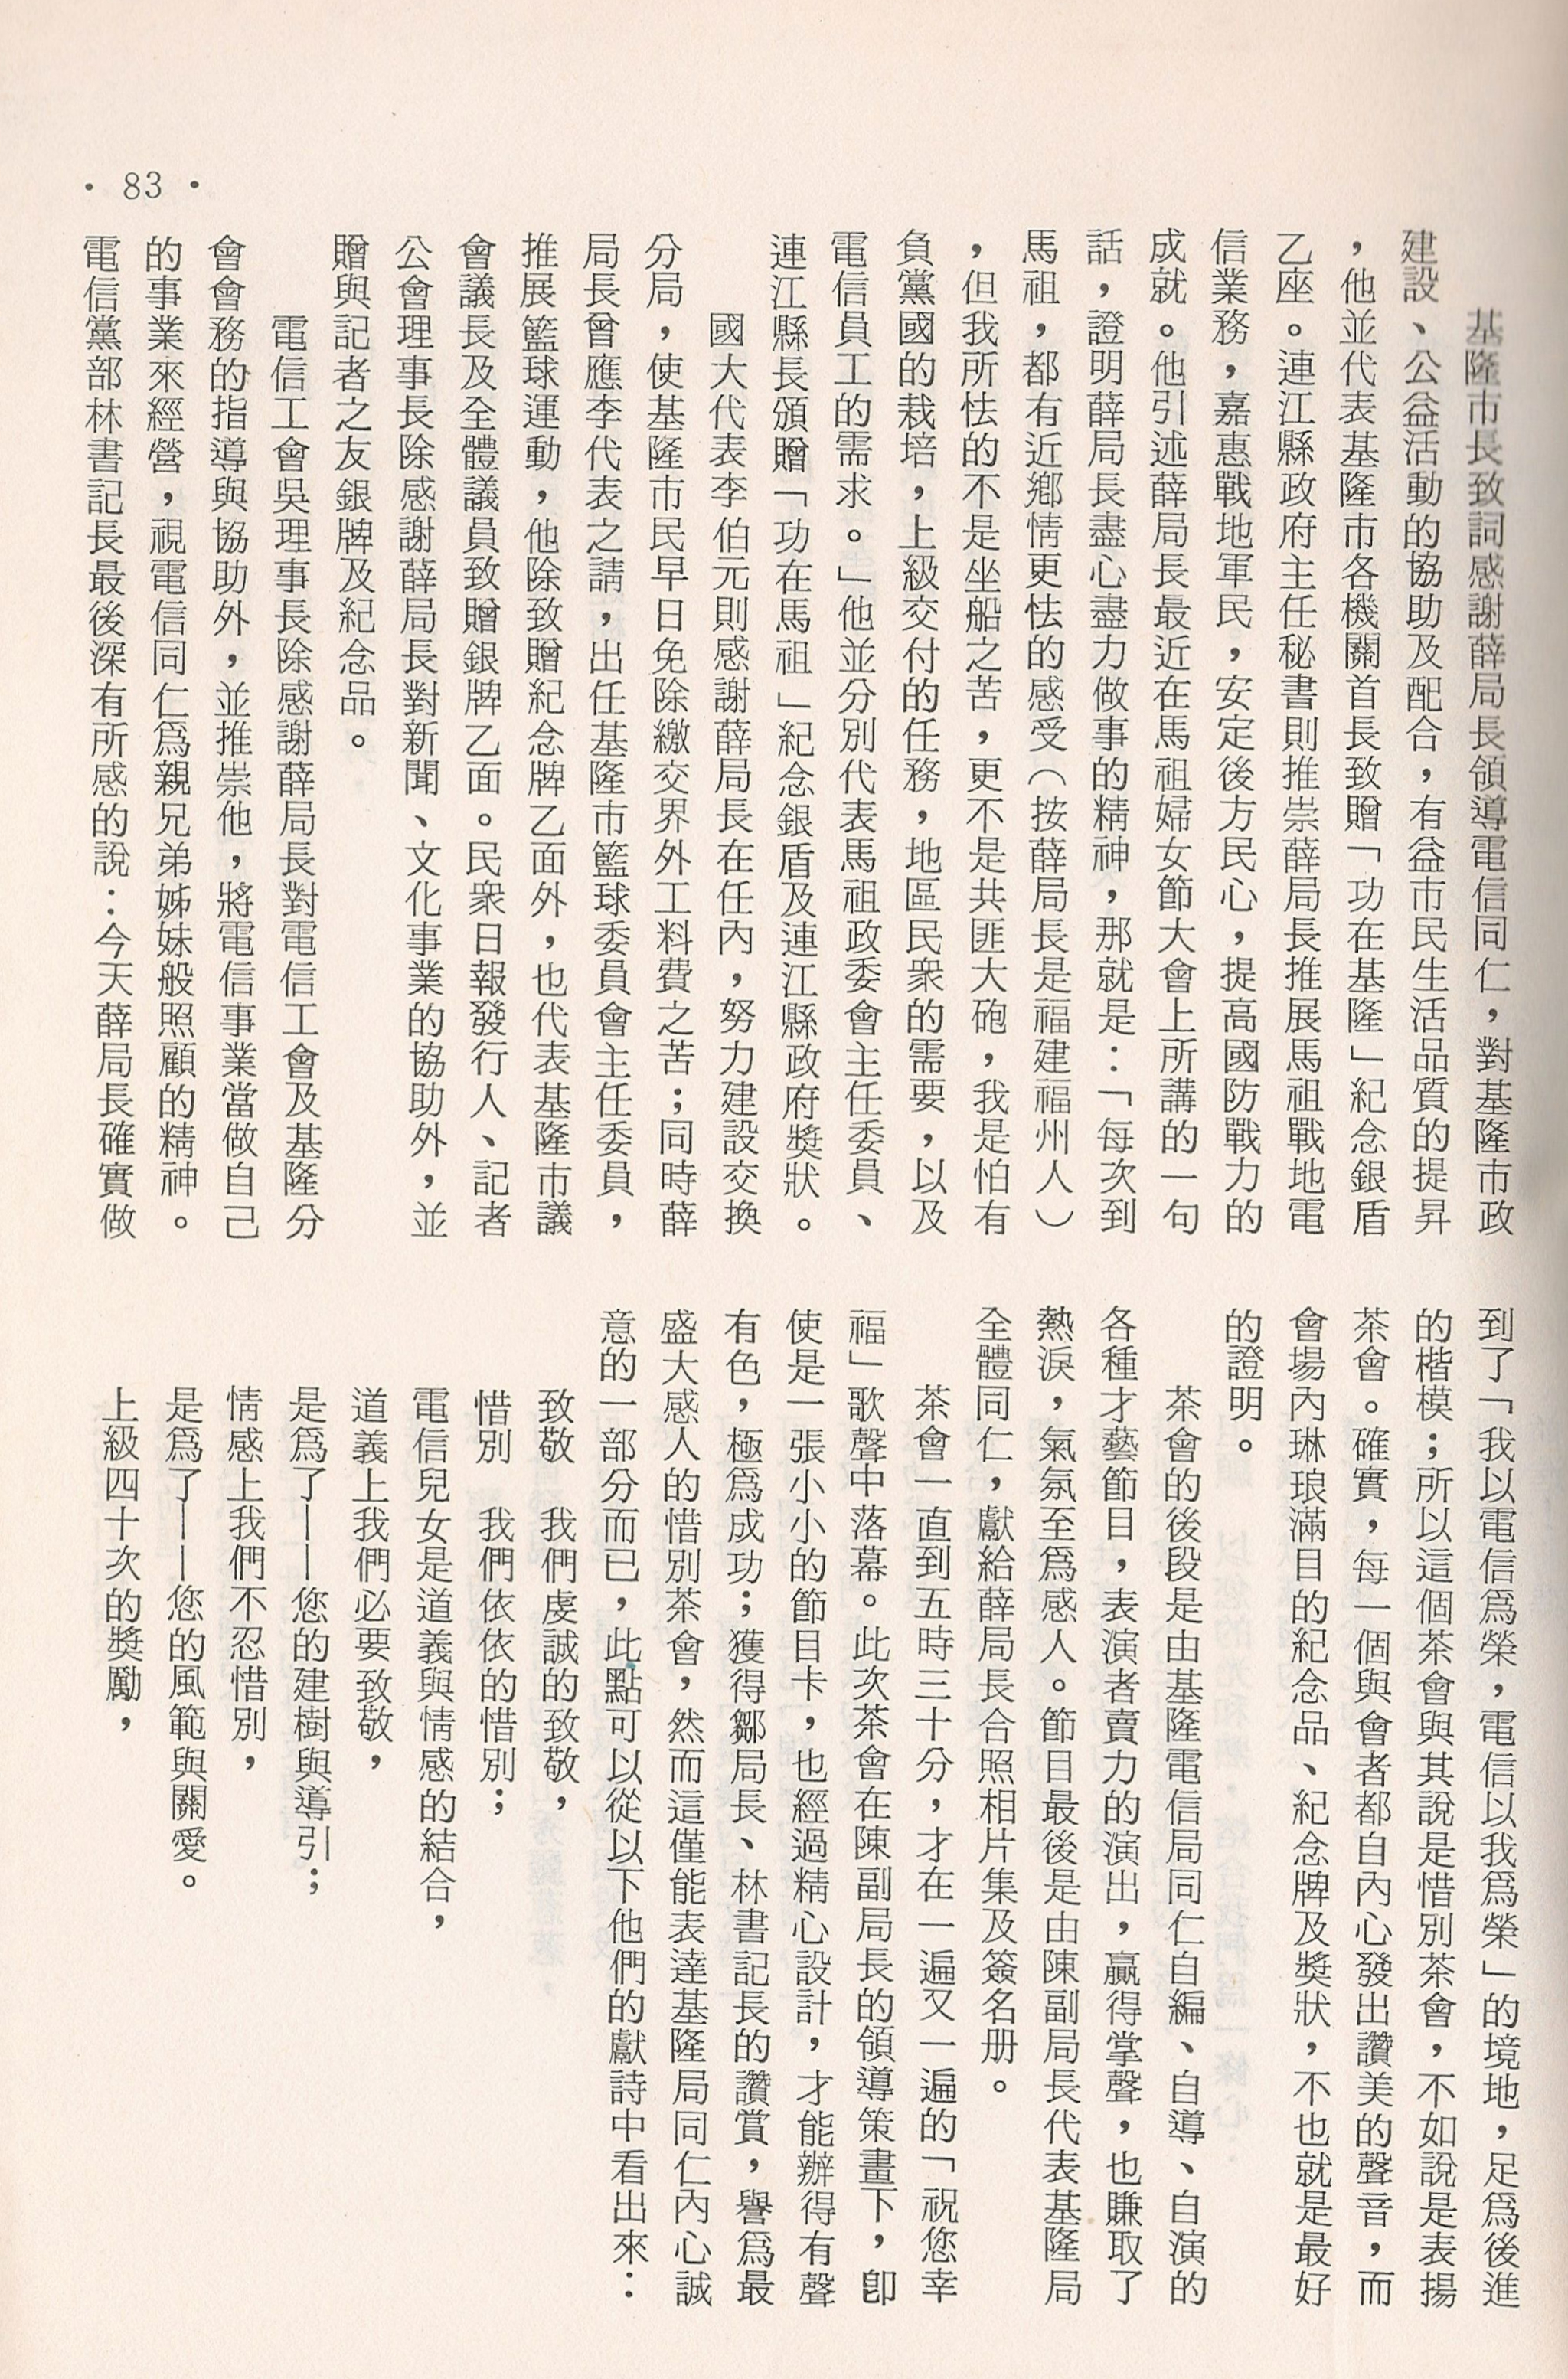 基隆市長致詞感謝薛局長領導電信同仁，對基隆市政
建設、公益活動的協助及配合，有益市民生活品質的提昇
，他並代表基隆市各機關首長致贈「功在基隆」紀念銀盾
乙座。連江縣政府主任秘書則推崇薛局長推展馬祖戰地電
信業務，嘉惠戰地軍民，安定後方民心，提高國防戰力的
成就。他引述薛局長最近在馬祖婦女節大會上所講的一句
話，證明薛局長盡心盡力做事的精神，那就是：「每次到
馬祖，都有近鄉情更怯的感受（按薛局長是福建福州人）
，但我所怯的不是坐船之苦，更不是共匪大砲，我是怕有
負黨國的栽培，上級交付的任務，地區民衆的需要，以及
電信員工的需求。」他並分別代表馬祖政委會主任委員、
連江縣長頒贈「功在馬祖」紀念銀盾及連江縣政府獎狀。
國大代表李伯元則感謝薛局長在任內，努力建設交換
分局，使基隆市民早日免除繳交界外工料費之苦；同時薛
局長曾應李代表之請，出任基隆市籃球委員會主任委員，
推展籃球運動，他除致贈紀念牌乙面外，也代表基隆市議
會議長及全體議員致贈銀牌乙面。民衆日報發行人、記者
公會理事長除感謝薛局長對新聞、文化事業的協助外，並
贈與記者之友銀牌及紀念品。
電信工會吳理事長除感謝薛局長對電信工會及基隆分
會會務的指導與協助外，並推崇他，將電信事業當做自己
的事業來經營，視電信同仁爲親兄弟姊妹般照顧的精神。
電信黨部林書記長最後深有所感的說：今天薛局長確實做
到了「我以電信爲榮，電信以我爲榮」的境地，足爲後進
的楷模；所以這個茶會與其說是惜別茶會，不如說是表揚
茶會。確實，每一個與會者都自內心發出讚美的聲音，而
會場內琳琅滿目的紀念品、紀念牌及獎狀，不也就是最好
的證明。
茶會的後段是由基隆電信局同仁自編、自導、自演的
各種才藝節目，表演者賣力的演出，贏得掌聲，也賺取了
熱淚，氣氛至爲感人。節目最後是由陳副局長代表基隆局
全體同仁，獻給薛局長合照相片集及簽名册。
茶會一直到五時三十分，才在一遍又一遍的「祝您幸
福」歌聲中落幕。此次茶會在陳副局長的領導策畫下，卽
使是一張小小的節目卡，也經過精心設計，才能辦得有聲
有色，極爲成功；獲得鄒局長、林書記長的讚賞，譽爲最
盛大感人的惜別茶會，然而這僅能表達基隆局同仁內心誠
意的一部分而已，此點可以從以下他們的獻詩中看出來：
致敬　我們虔誠的致敬，
惜別　我們依依的惜別；
電信兒女是道義與情感的結合，
道義上我們必要致敬，
是爲了——您的建樹與導引；
情感上我們不忍惜別，
是爲了——您的風範與關愛。
上級四十次的獎勵，
・83・